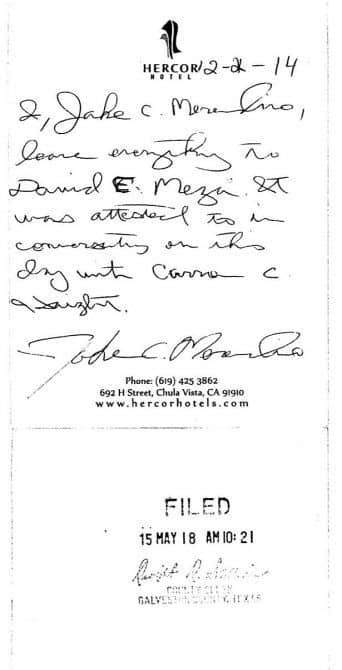 HERCOR
HOTEL
12-2-14
I, Jake C. Merendino,
leave everything to
David E. Meza. It
was attested to in
conversation on this
day with C.
Phone: (619) 425 3862
692 H Street, Chula Vista, CA 91910
www.hercorhotels.com
FILED
15 MAY 18 AM 10:21
COUNTY CLERK
GALVESTON COUNTY, TEXAS